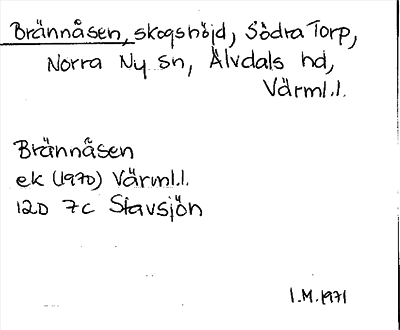 Brännåsen, skogshöjd, Södra Torp,
Norra Ny sn, Älvdals hd,
Värml.l.
Brännåsen
ek (1970) Värml.l.
12D 7c Stavsjön
I.M.1971